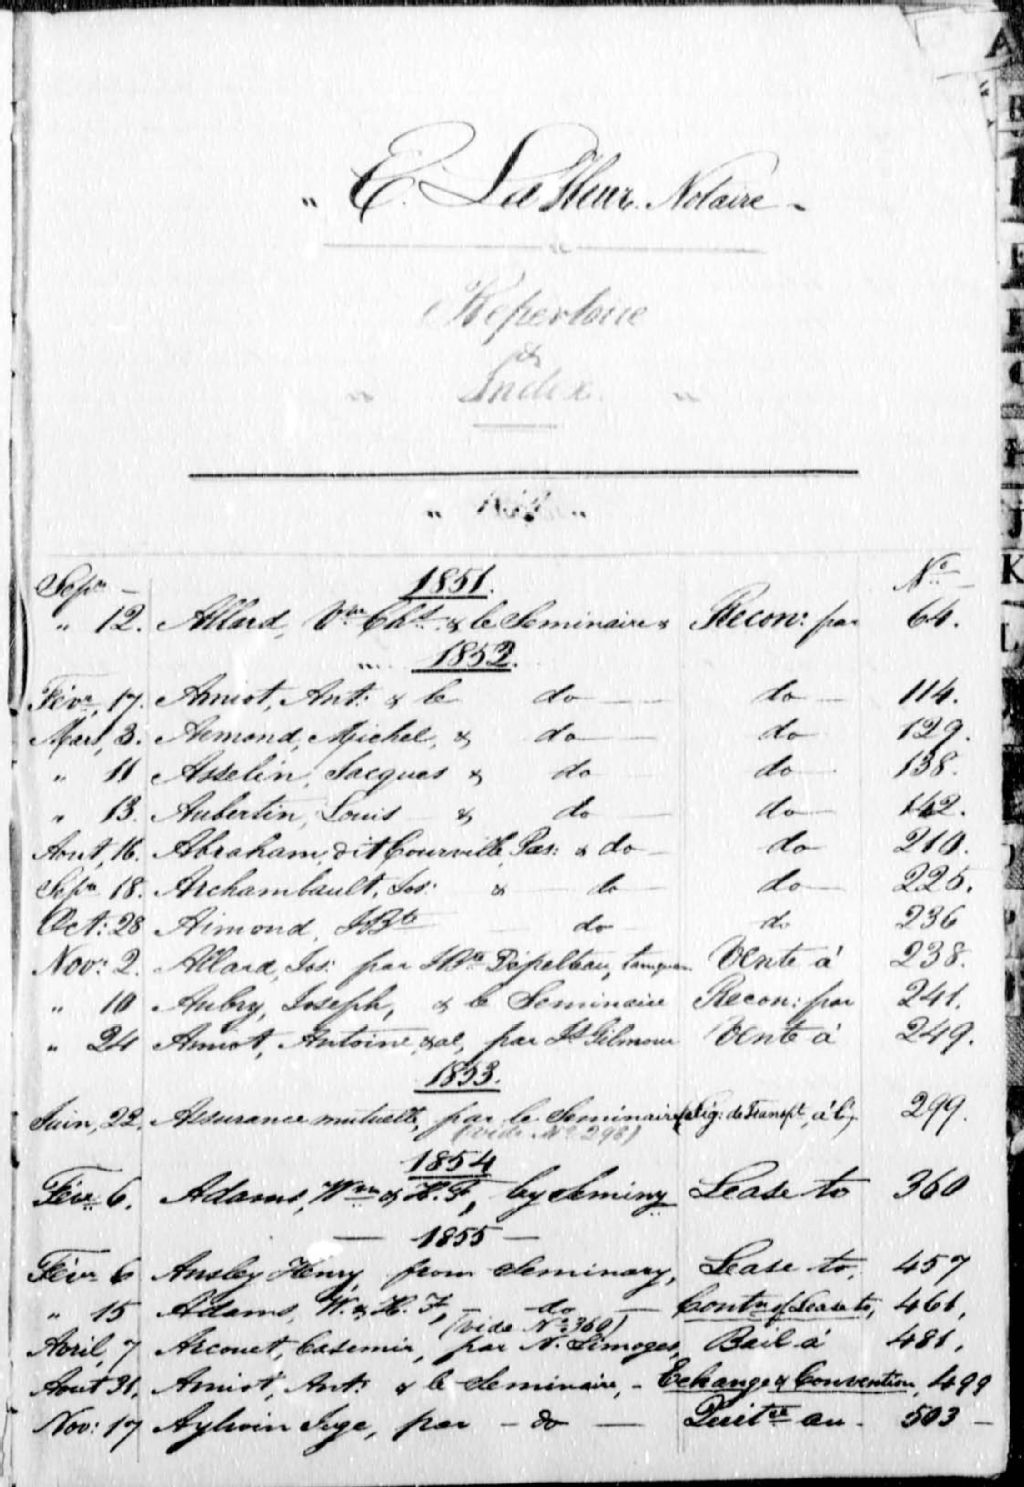 " E. Lafleur. Notaire -
Répertoire
&
" Index "
Sepre - 1851. No
" 12. Allard, Vve Chs & le Seminaire Recon: par 64.
" 1852.
Fevr, 17. Amiot, Ant: & le do do 114.
Mars, 3. Aemond, Michel, & do do 129.
" 11 Asselin, Jacques & do do 138.
" 13. Aubertin, Louis & do do 142.
Aout, 16. Abraham, dit Courville, Pas: & do do 210.
Sepre 18. Archambault, Jos: & do do 225.
Oct: 28 Aimond, JBte do do 236
Nov: 2. Allard, Jos: par JBte Dépelteau, Vente à 238.
" 10 Aubry, Joseph, & le Seminaire Recon: par 241.
" 24 Amiot, Antoine, &al, par Js Gilmour Vente à 249.
1853.
Juin, 22. Assurance mutuelle, par le Seminaire, Transpt, à 299.
(vide No 298)
1854
Fevr 6. Adams, Wm & H. F, by Seminy Lease to 360
— 1855 —
Fevr 6 Ansley Henry, from Seminary, Lease to, 457
" 15 Adams, W. & H. F, — do — Contn of Lease to, 461,
(vide No 360)
Avril, 7 Arcouet, Casemir, par N. Limoges, Bail à 481,
Aout 31, Amiot, Ant: & le Seminaire, - Echange & Convention, 499
Nov: 17 Aylwin Inge, par - do — Quitce au - 503 -
A
B
E
F
G
H
J
K
L
P